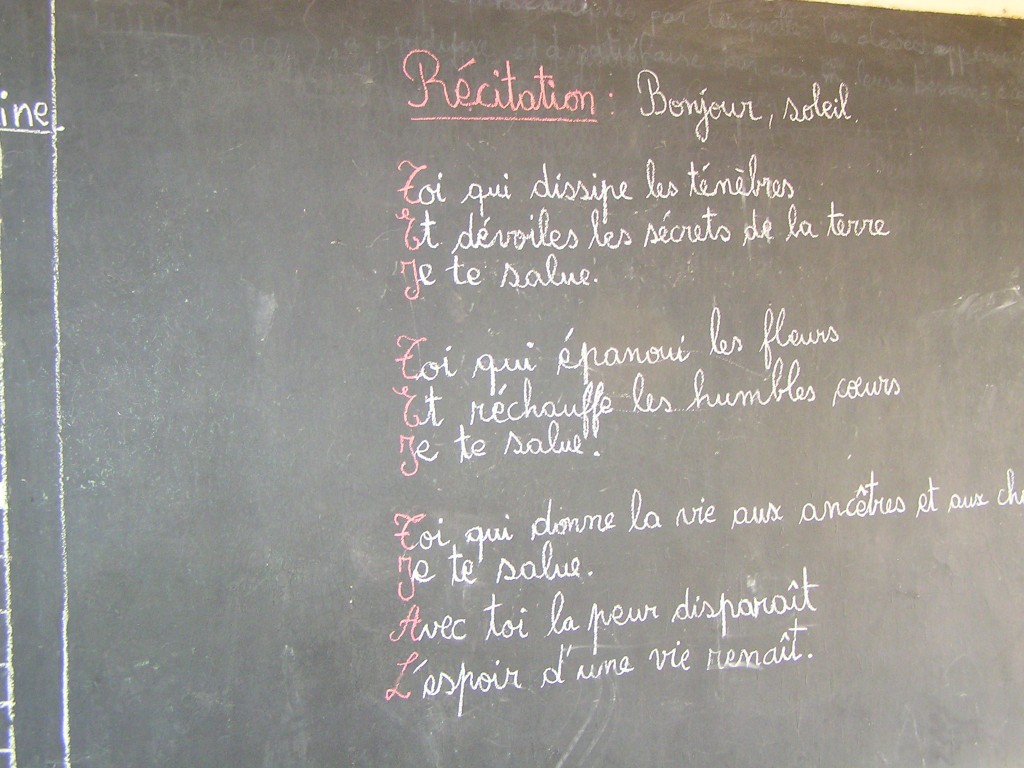 ine
Récitation : Bonjour, soleil.
Toi qui dissipe les ténèbres
Et dévoiles les sécrets de la terre
Je te salue.
Toi qui épanoui les fleurs
Et réchauffe les humbles cœurs
Je te salue.
Toi qui donne la vie aux ancêtres et aux ch
Je te salue.
Avec toi la peur disparaît
L'espoir d'une vie renaît.